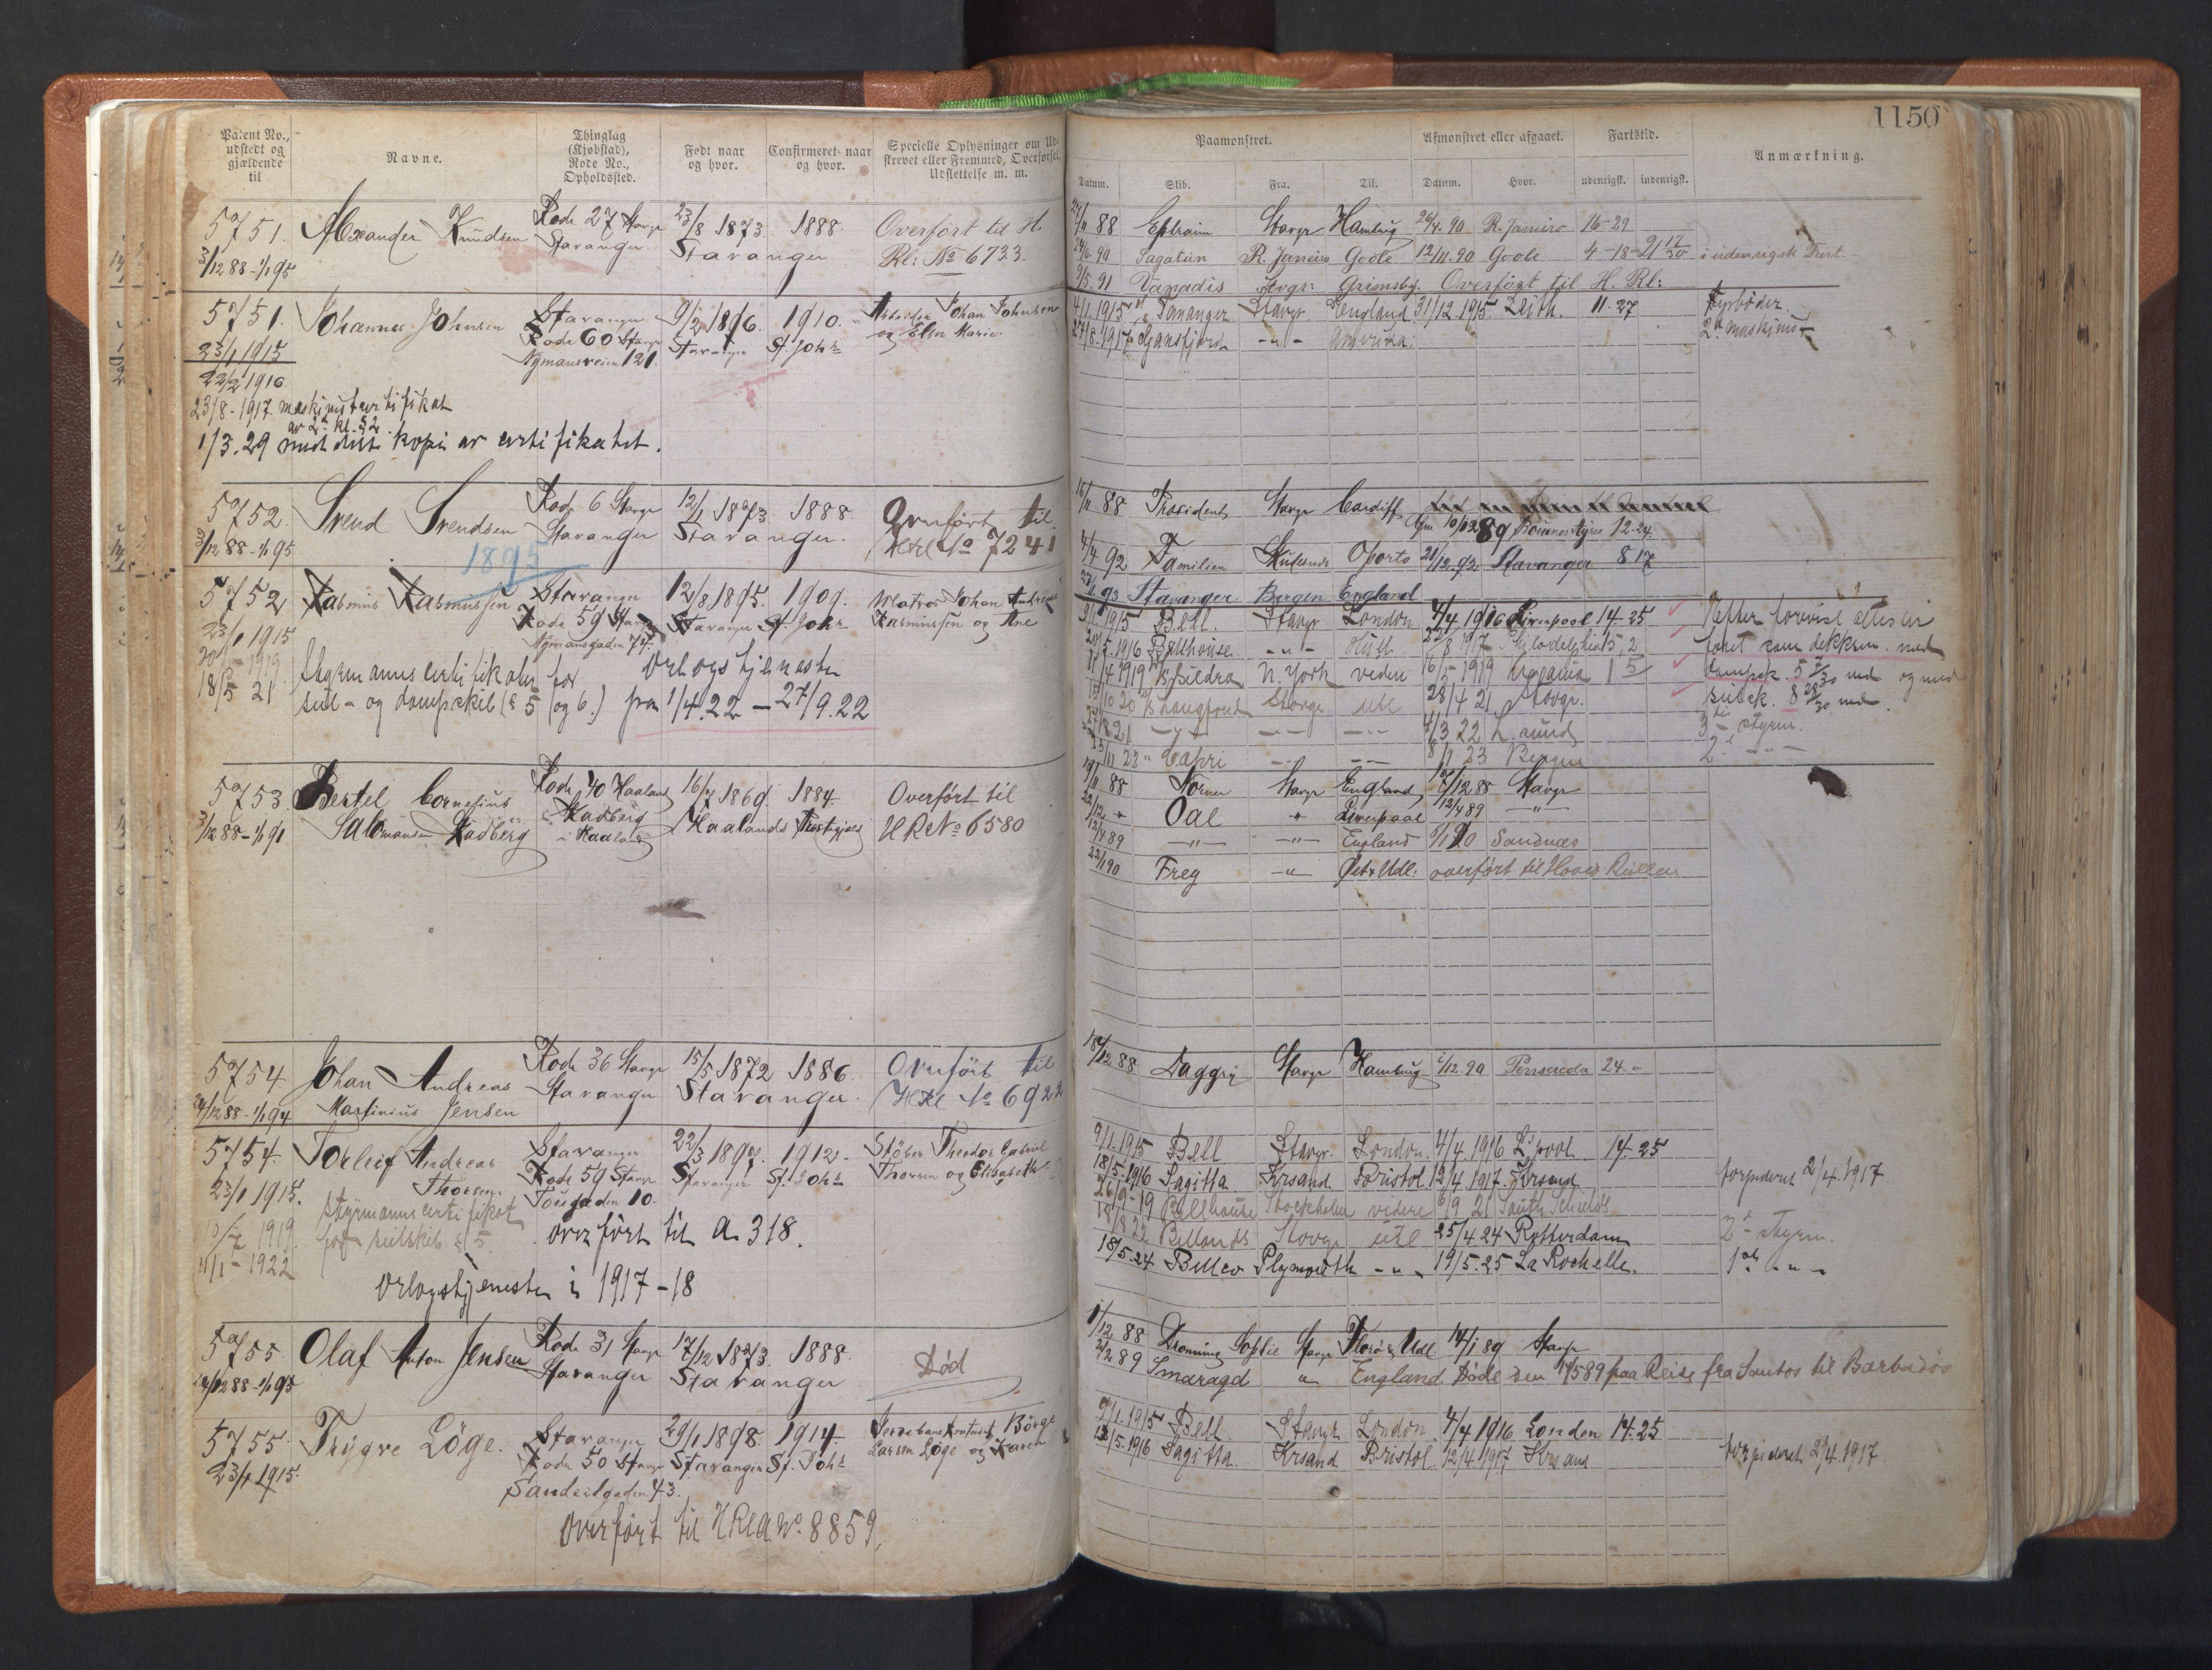 Patent No., udstedt og gjældende til
Navne.
Thinglag (Kjøbstad), Rode No., Opholdssted.
Født naar og hvor.
Confirmeret naar og hvor.
Specielle Oplysninger om Udskrevet eller Fremmed, Overførsel, Udslettelse m. m.
1150
Paamønstret.
Afmønstret eller afgaaet.
Fartstid.
Anmærkning.
Datum.
Skib.
Fra.
Til.
Datum.
Hvor.
udenrigsk.
indenrigsk.
5751. Alexander Knudsen Rode 27 Stavgr 23/8 1873. 1888. Overført til H.
3/12 88-1/1 95 Stavanger Stavanger Rl: No 6733.
88 Ephraim Stavgr Hamburg 26/4. 90 R. Janeiro 16-29
24/6. 90 Sagatun R. Janeiro Goole 12/11. 90 Goole 4-18 = 21 17/30 i udenrigsk Fart.
9/5. 91 Vanadis Stvgr: Grimsby. Overført til H. Rl:
5751. Johannes Johnsen Stavanger 9/2 1896. 1910. Arbeider Johan Johnsen
23/1 1915 Rode 60 Stavgr Stavanger St. Johs og Elen Marie.
22/2 1916 Nymansveien 121.
23/8-1917 maskinistcertifikat
av 2. kl. § 2
1/3. 29 meddelt kopi av certifikatet.
4/1. 1915 Tananger Stavgr. England 31/12. 1915. Leith. 11. 27 Fyrbøder.
27/8. 1917 -"- Amerika. 2. maskinist
5752. Svend Svendsen Rode 6 Stavgr 12/1 1873. 1888 Overført til
3/12 88-1/1 95 Stavanger Stavanger. HRl No 7241
1895
88 Præsident Stavgr Cardiff
10/12 89 Buenos Ayres 12-24.
4/4 92 Familien Oporto 21/12. 92 Stavanger 8 17
93 Stavanger Bergen England
5752 Rasmus Rasmussen Stavanger 12/8 1895. 1909. Matros Johan Andreas
23/1 1915 Rode 59 Stavgr Stavanger St. Johs Rasmussen og Ane
1919 Nymansgaden 74.
18/5 21 Styrmannscertifikater for
seil- og dampskib (§ 5 og 6.)
orlogstjeneste
fra 1/4. 22 - 27/9. 22
9/1. 1915 Bell. Stavgr London 4/4 1916 Liverpool 14-25 Efter forevist attester
1916 Bellhouse -"- Hull 1917 Philadelphia 15, 2 faret som dekksm. med
4 1919 N. York viden 16/5-1919 dampsk. 5 md og med
10 20 Stavgr utl 28/4 21 Stavgr. seilsk. 8 28/30 md.
27/8 21 4/3 22 3die styrm.
22 Capri 8/1 23 Bergen 2.
5753 Bertel Cornelius Rode 40 Haaland 16/7 1869. 1884. Overført til
3/12 88-1/1 91 Salomonsen Hadberg Hadberg i Haaland Haalands Prestegjeld HRl No 6580
88 Norner Stavgr England 17/12 88 Stavgr
22/12 " Oal " Liverpool 12/4 89 -"-
12/4 89 -"- -"- England 6/1 90 Sandnæs
22/1 90 Freg -"- Øst & Udl: overført til Hoved Rullen
5754. Johan Andreas Rode 36 Stavgr 15/5 1872 1886. Overført til
88-1/1 94 Martinius Jensen Stavanger Stavanger. HRl No 6922
12 88 Daggry Stavgr Hamburg 12. 90 Pensacola 24 -
5754. Torleif Andreas Stavanger 22/3 1897. 1912. Støber Theodor Gabriel
23/1 1915. Thorsen. Rode 59 Stavgr Stavanger St. Johs Thorsen og Elisabeth
1919. styrmannscertifikat Tougaden 10.
1922 for seilskib § 5. overført til A. 318.
orlogstjeneste i 1917-18
9/1. 1915 Bell Stavgr. London. 4/4. 1916 L'pool. 14-25
18/5. 1916 Sagitta Krsand Bristol 12/4. 1917. Krsand torpederet 2/4. 1917
26/9-19 Bellhouse Stockholm videre 6/9 21 South Schields
18/8 22 Stavgr utl 25/4 24 Rotterdam 2. styrm.
18/5. 24 Plymouth -"- 19/5. 25 La Rochelle. 1ste -"-
5755 Olaf Anton Jensen Rode 31 Stavgr 17/12 1873. 1888. Død
88-1/1 95 Stavanger Stavanger
1/12 88 Dronning Sophie Stavgr & Udl 14/1 89 Stavgr
2 89 Smaragd " England. Døde den 89 paa Reise fra Santos til Barbados
5755 Trygve Löge. Stavanger 29/1 1898. 1914. Börge
23/1. 1915. Rode 50 Stavgr Stavanger St. Johs Larsen Løge og Karen
Sandeilgaden 43.
overført til H Rl A No. 8859.
9/1. 1915 Bell. Stavgr London. 4/4 1916 London 14-25
18/5. 1916 Sagitta. Krsand Bristol. 12/4 1917 Krsand torpederet 2/4. 1917